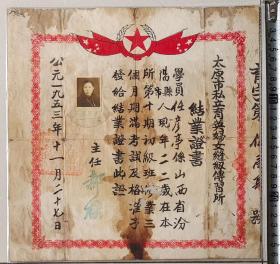 太原市私立育英婦女縫紉傳習所
結業證書
學員任彥亭係山西省汾
陽縣人現年二二歲在本
所第十期初級班修業三
個月期滿考試及格准予
發給結業證書此證
主任
公元一九五三年十一月二十七日